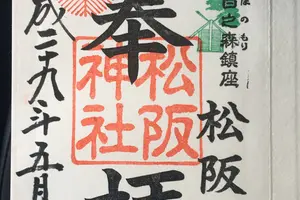 宵之森鎮座
よいのもり
松阪
奉拝
松阪神社
成二十九年五月